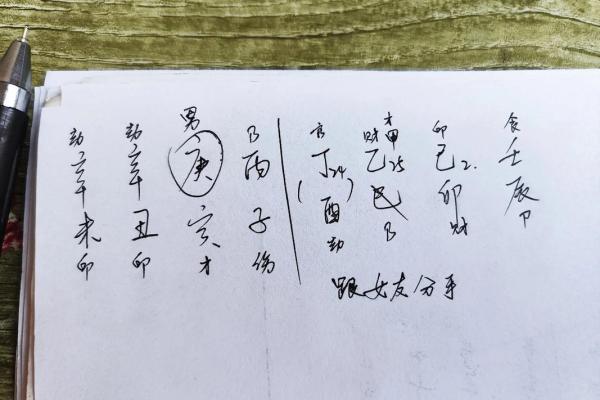 男
劫 劫 官 财 才 印 食
辛 辛 庚 丙 丁24 乙25 甲 己2. 壬
未 丑 寅 子 (酉) 巳 卯 辰
印 印 才 伤 劫 财 卩
跟女友分手